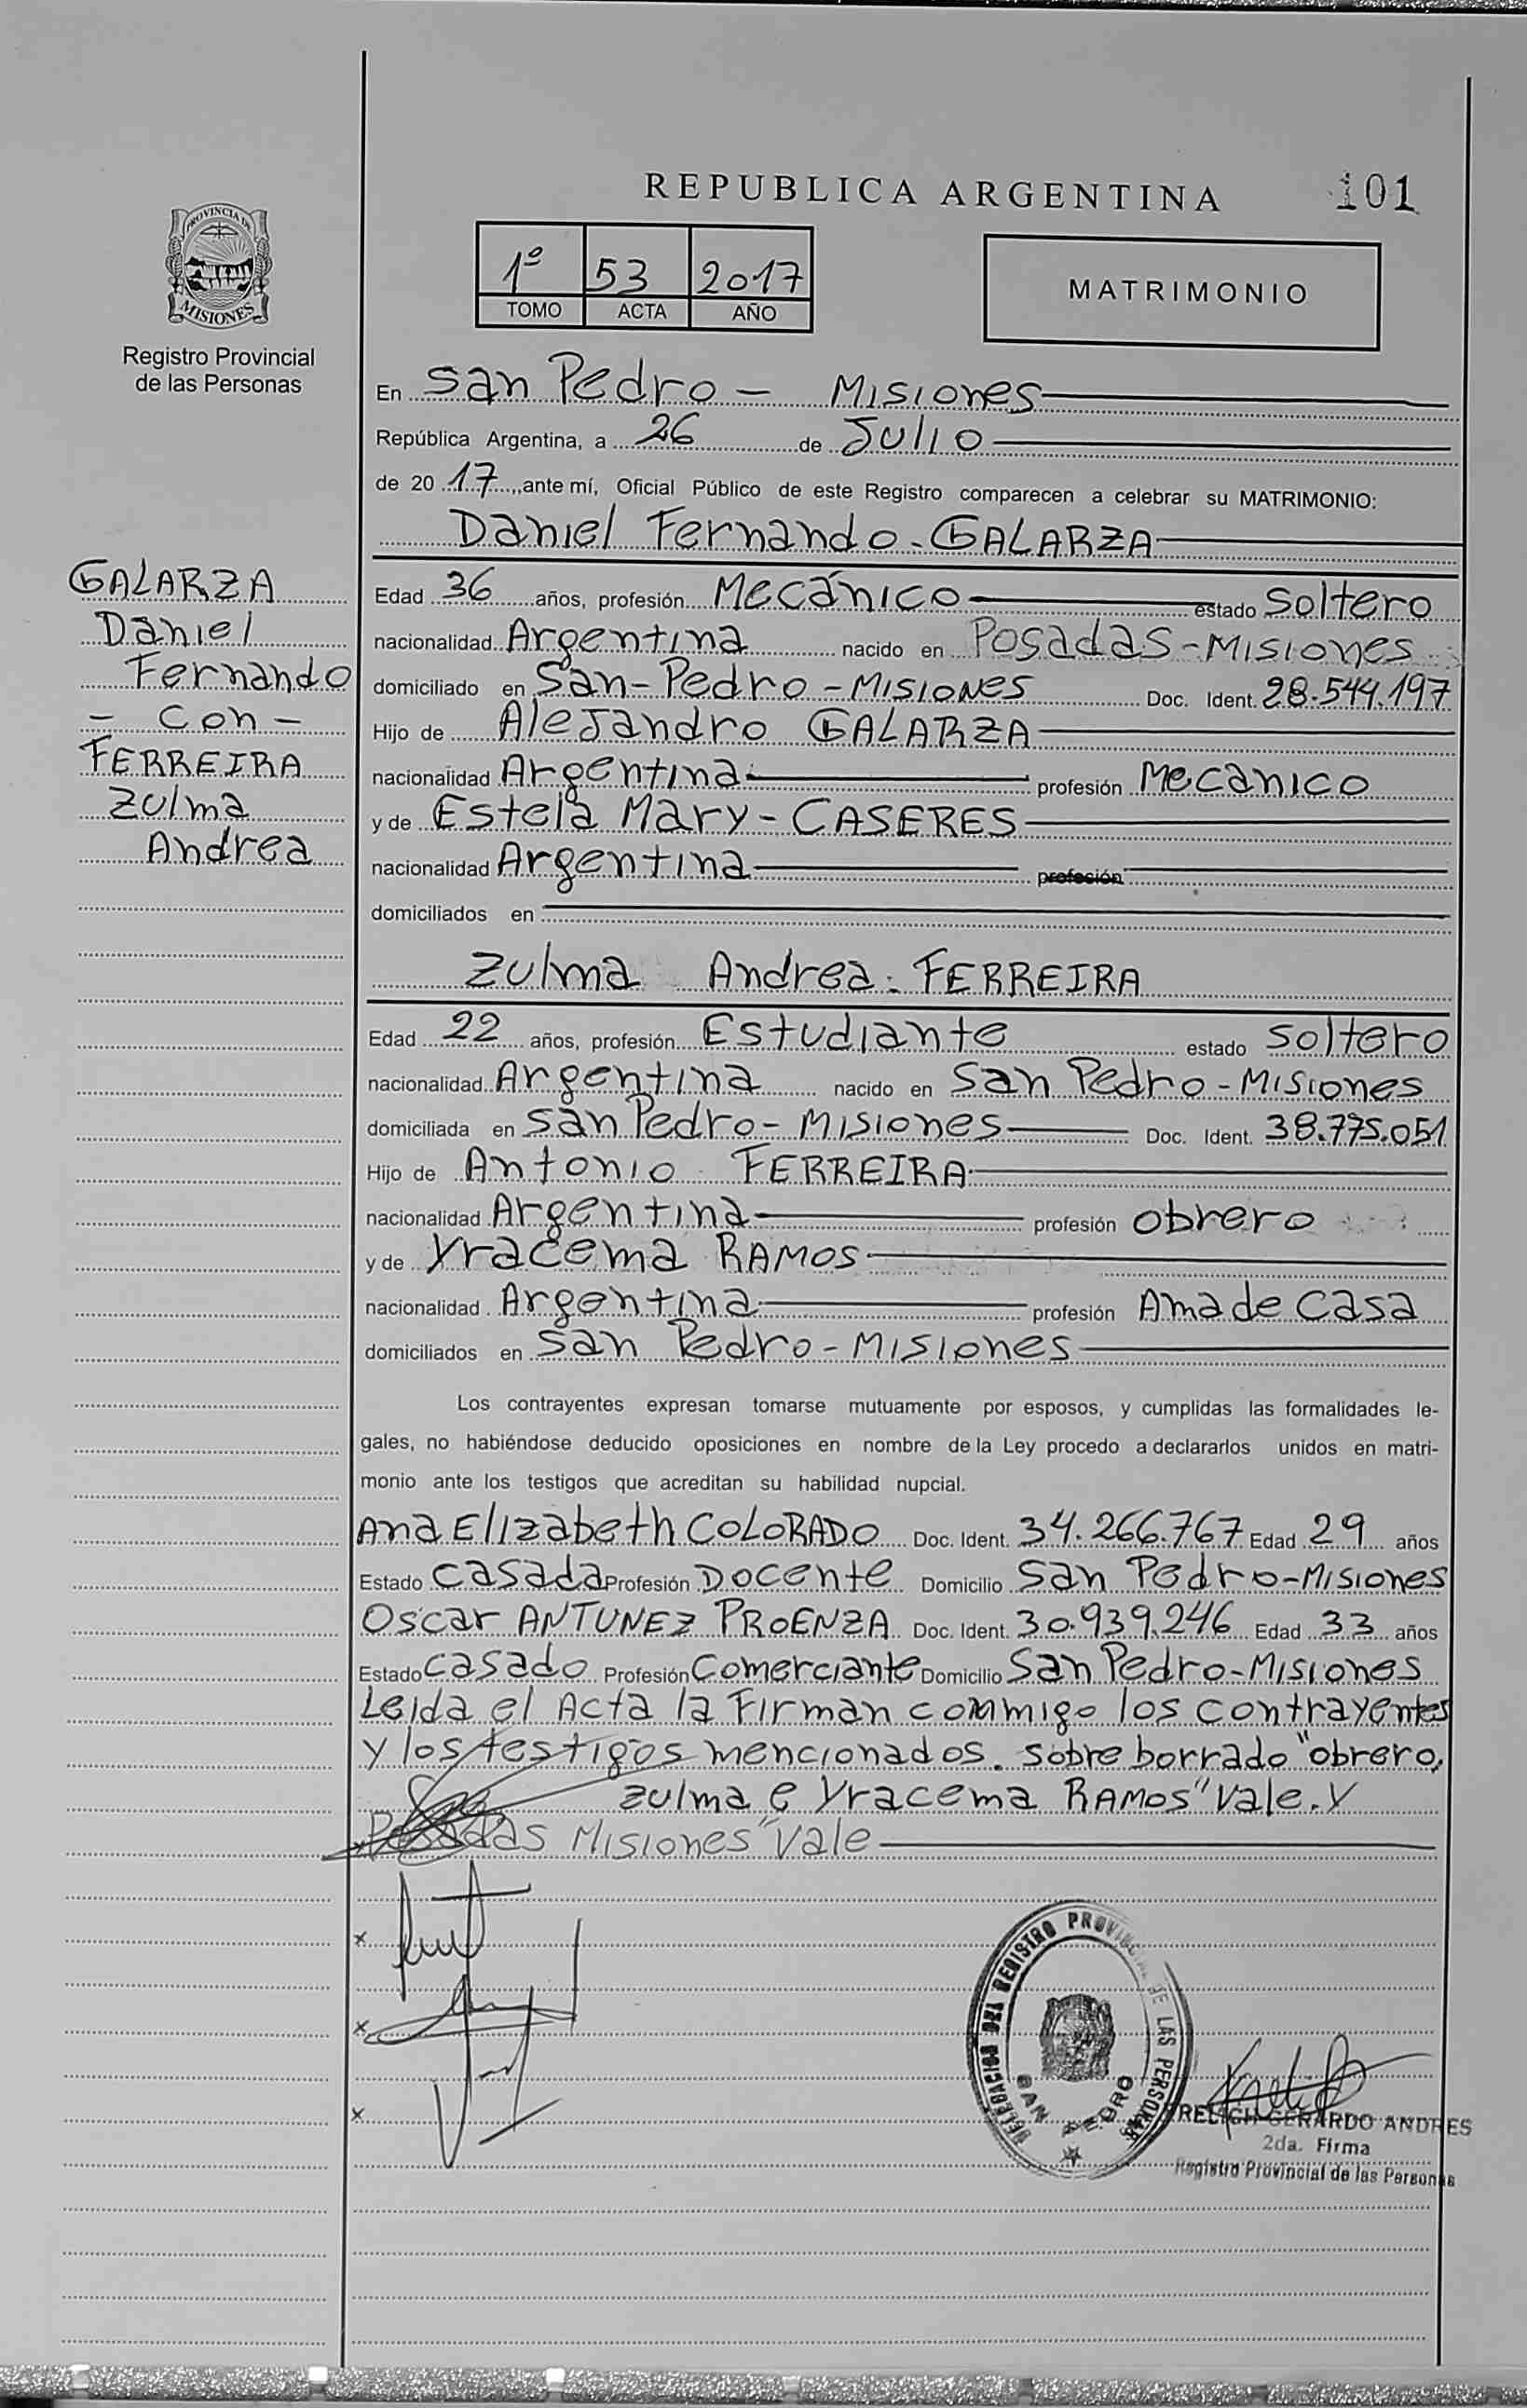 REPUBLICA ARGENTINA
101
PROVINCIA DE
MISIONES
Registro Provincial
de las Personas
1º 53 2017
TOMO ACTA AÑO
MATRIMONIO
En San Pedro - Misiones
República Argentina, a 26 de Julio
de 2017, ante mí, Oficial Público de este Registro comparecen a celebrar su MATRIMONIO:
Daniel Fernando. GALARZA
GALARZA
Daniel
Fernando
- Con -
FERREIRA
Zulma
Andrea
Edad 36 años, profesión Mecánico estado Soltero
nacionalidad Argentina nacido en Posadas - Misiones
domiciliado en San-Pedro - Misiones Doc. Ident. 28.544.197
Hijo de Alejandro GALARZA
nacionalidad Argentina profesión Mecanico
y de Estela Mary - CASERES
nacionalidad Argentina profesión
domiciliados en
Zulma Andrea. FERREIRA
Edad 22 años, profesión Estudiante estado Soltero
nacionalidad Argentina nacido en San Pedro - Misiones
domiciliada en San Pedro - Misiones Doc. Ident. 38.775.051
Hijo de Antonio FERREIRA
nacionalidad Argentina profesión obrero
y de Yracema RAMOS
nacionalidad Argentina profesión Ama de Casa
domiciliados en San Pedro - Misiones
Los contrayentes expresan tomarse mutuamente por esposos, y cumplidas las formalidades le-
gales, no habiéndose deducido oposiciones en nombre de la Ley procedo a declararlos unidos en matri-
monio ante los testigos que acreditan su habilidad nupcial.
Ana Elizabeth COLORADO Doc. Ident. 34.266.767 Edad 29 años
Estado Casada Profesión Docente Domicilio San Pedro - Misiones
Oscar ANTUNEZ PROENZA Doc. Ident. 30.939.246 Edad 33 años
Estado Casado Profesión Comerciante Domicilio San Pedro - Misiones
Leida el Acta la Firman conmigo los Contrayentes
y los testigos mencionados. Sobre borrado "obrero,
zulma e Yracema RAMOS" Vale. Y
Posadas Misiones" Vale
DELEGACION DEL REGISTRO PROVINCIAL DE LAS PERSONAS
SAN PEDRO
GERARDO ANDRES
2da. Firma
Registro Provincial de las Personas